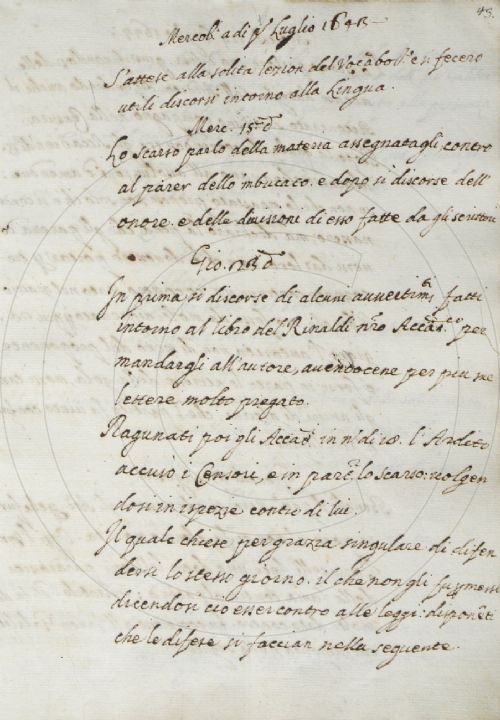 43.
Mercol. a dì p.º Luglio 1643
S'attese alla solita lezion del Vocabol.º e si fecero
utili discorsi intorno alla Lingua.
Merc. 15. d.º
Lo Scarso parlò della materia assegnatagli contro
al parer dello imbucato. e dopo si discorse dell'
onore. e delle divisioni di esso fatte da gli scrittori
Gio. d.º
In prima si discorse di alcuni avvertim.ti fatti
intorno al libro del Rinaldi nr̃o Accad.co per
mandargli all'autore, avendocene per più sue
lettere molto pregato.
Ragunati poi gli Accad. in n.º di 18. l'Ardito
accusò i Censori, e in part.e lo Scarso: volgen
dosi in ispezie contr.º di lui.
Il quale chiese per grazia singulare di difen
dersi lo stesso giorno. il che non gli fu permesso
dicendosi ciò esser contro alle leggi: disponẽt
che le difese si faccian nella seguente.